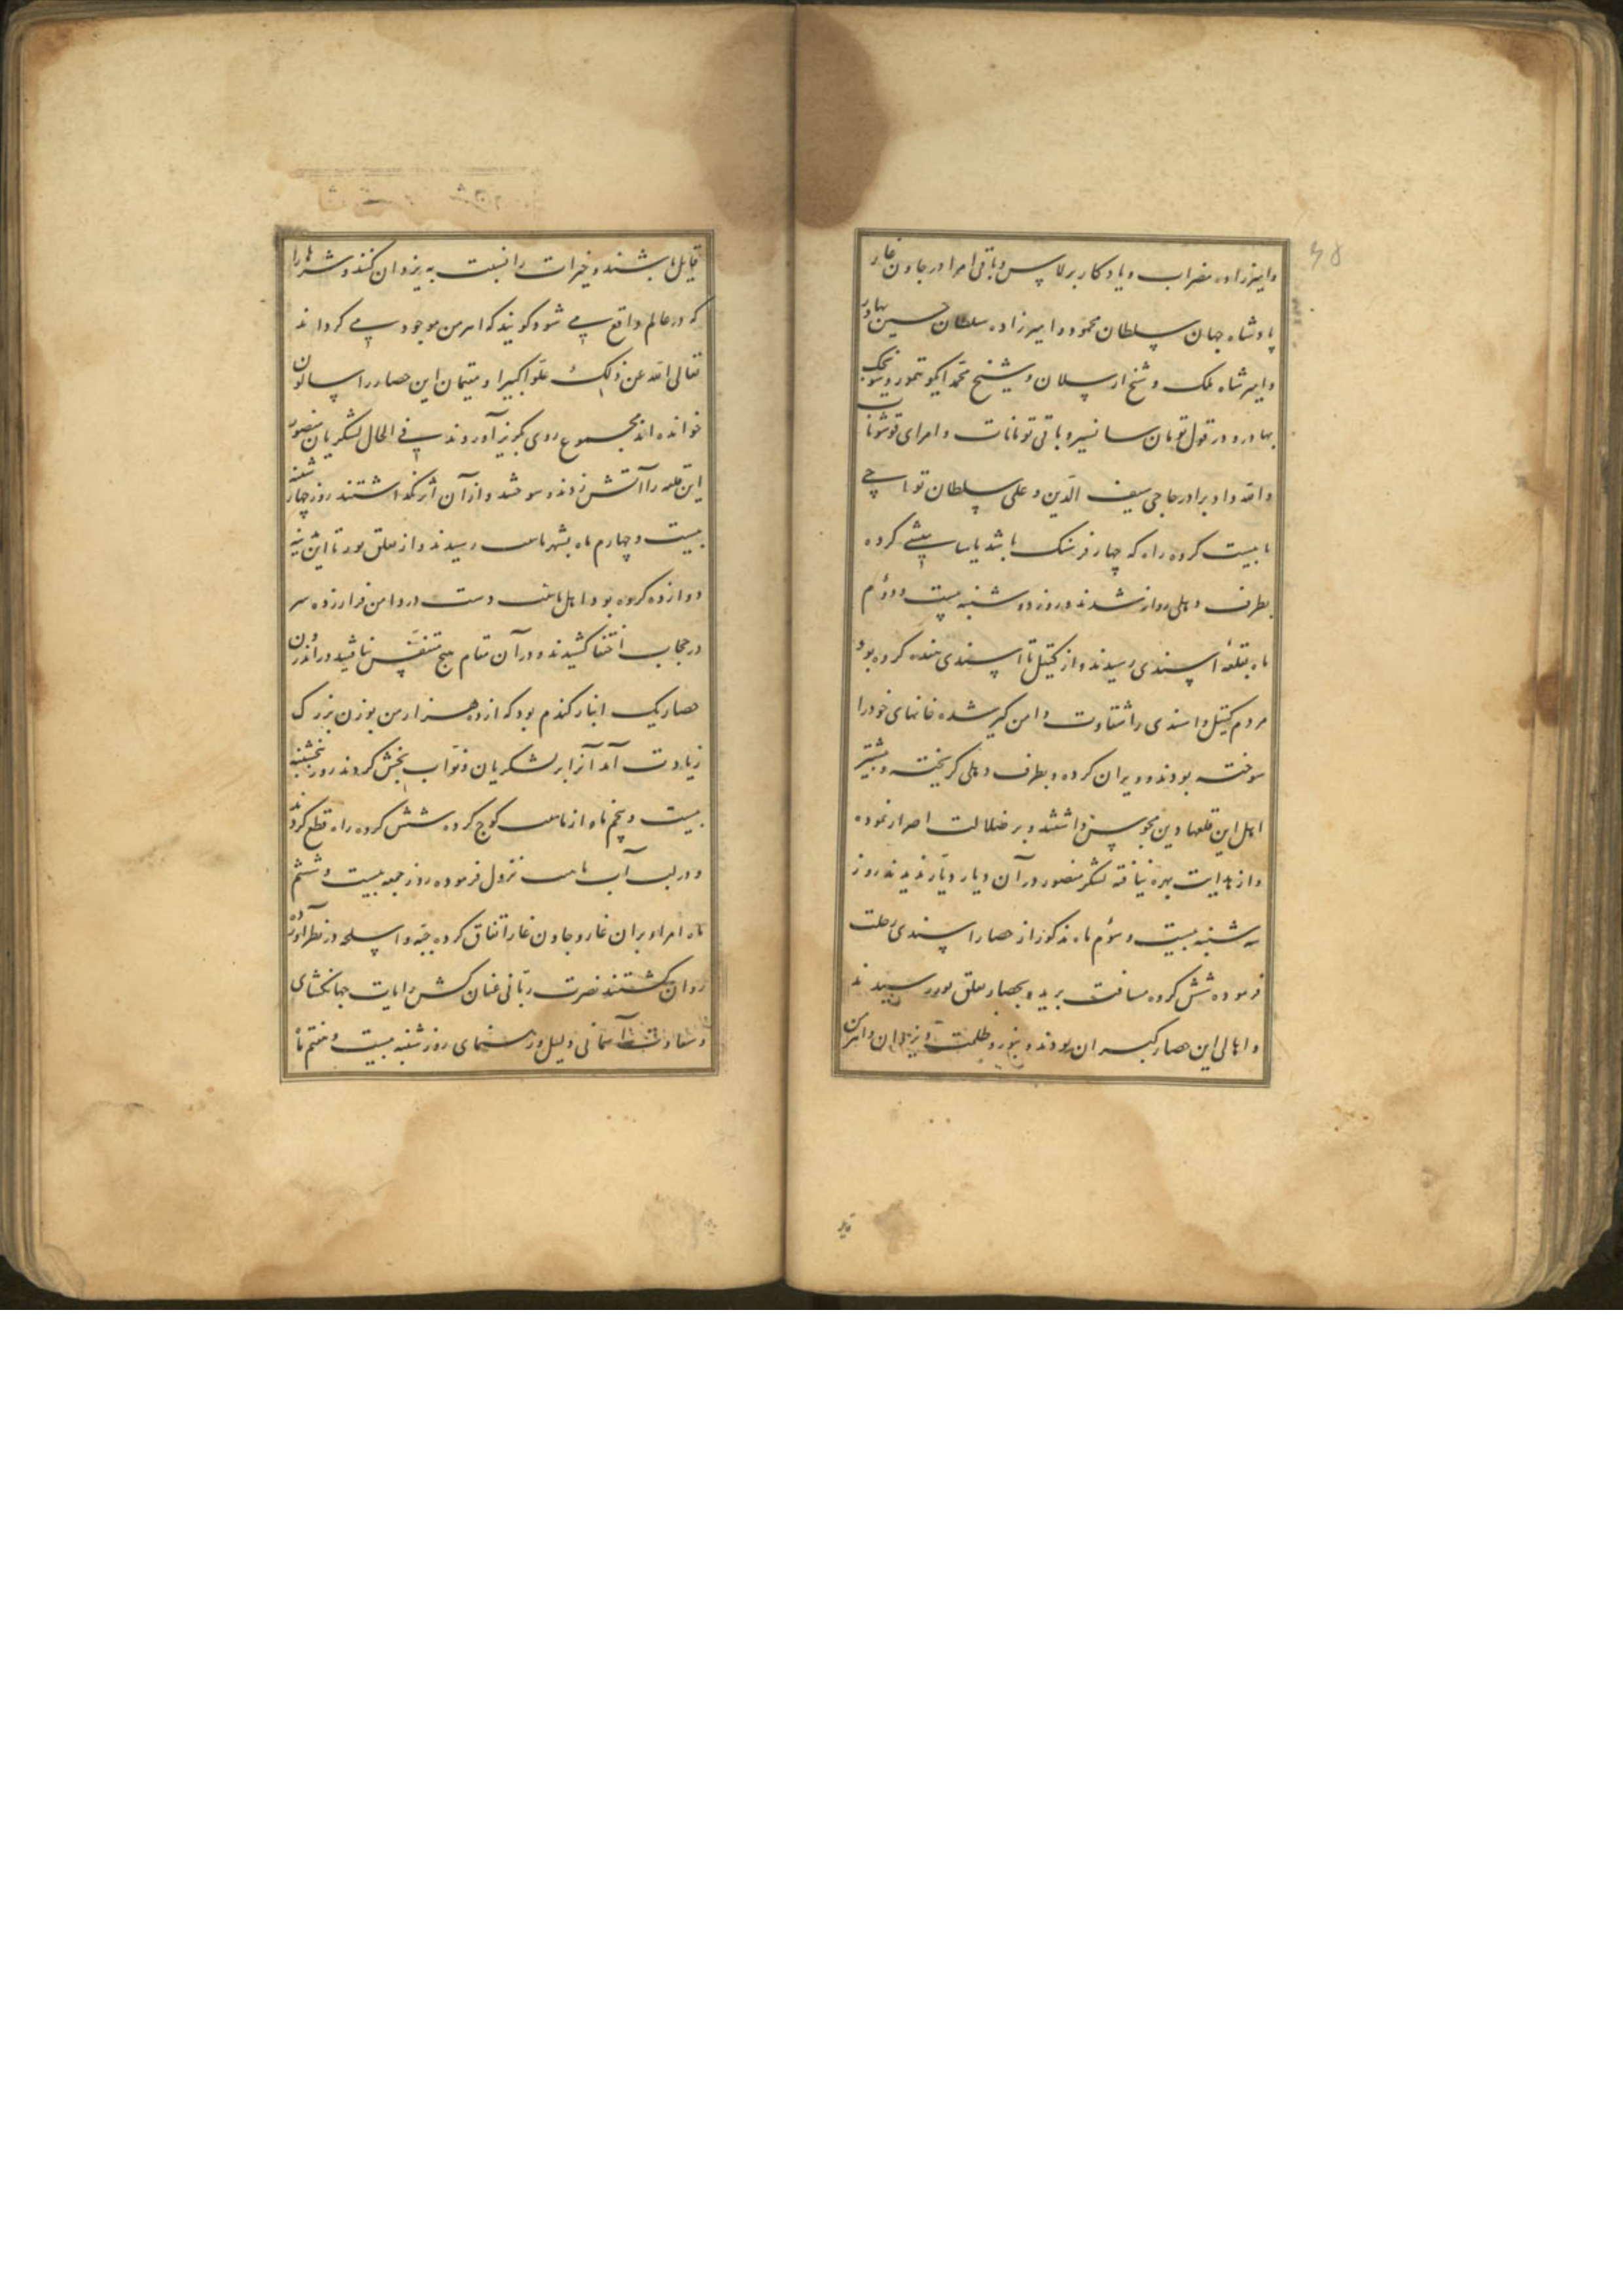 وامیرزاده مضراب و یادکار برلاس و باقی امرا و در جاون غار
پادشاه جهان سلطان محمود و امیرزاده سلطان حسین بهادر
و امیر شاه ملک و شیخ ارسلان و شیخ محمد ایکو تیمور و سونجک
بهادر و در قول تومان سانسیز و باقی تومانات و امرای قوشونات
و الله داد برادر حاجی سیف الدّین و علی سلطان تواچی
تا بیست کروه راه که چهار فرسنک باشد یاسامیشی کرده
بطرف دهلی روانه شدند و روز دوشنبه بیست و دوّم
ماه بقلعهٔ اسندی رسیدند و از کتیل تا اسندی هفده کروه بود
مردم کتیل و اسندی را شقاوت دامن کیر شده خانهای خود را
سوخته بودند و ویران کرده و بطرف دهلی کریخته و بیشتر
اهل این قلعها دین مجوس داشتند و بر ضلالت اصرار نموده
و از هدایت بهره نیافته لشکر منصور در آن دیار دیّار ندیدند روز
سه شنبه بیست و سوّم ماه مذکور از حصار اسندی رحلت
فرموده شش کروه مسافت برید و بحصار تغلق پور رسیدند
و اهالی این حصار کبران بودند و بنور و ظلمت و یزدان و اهرمن
قایل باشند و خیرات را نسبت به یزدان کنند و شرها را
که در عالم واقع می شود کویند که اهرمن موجود می کرداند
تعالی الله عن ذلک علوّا کبیرا و مقیمان این حصار را سالون
خوانده اند مجموع روی بکریز آوردند فی الحال لشکریان منصور
این قلعه را آتش زدند و سوختند و از آن اثر نکذاشتند روز چهار شنبه
بیست و چهارم ماه بشهر پانی پت رسیدند و از تغلق پور تا این
دوازده کروه بود و اهل پانی پت دست در دامن فرار زده سر
در حجاب اختفا کشیدند و در آن مقام هیچ متنفّس نیافتند و در اندرون
حصار یک انبار کندم بود که از ده هزار من بوزن بزرک
زیادت آمد آنرا بر لشکریان و نوّاب بخش کردند روز پنجشنبه
بیست و پنجم ماه از پانی پت کوچ کرده شش کروه راه قطع کردند
و در لب آب پانی پت نزول فرموده روز جمعه بیست و ششم
ماه امراء بران غار و جاون غار اتفاق کرده جبّه و اسلحه در نظر آورده
روان کشتند نصرت ربّانی عنان کش رایات جهانکشای
و سعادت آسمانی دلیل و رهنمای روز شنبه بیست و هفتم ماه